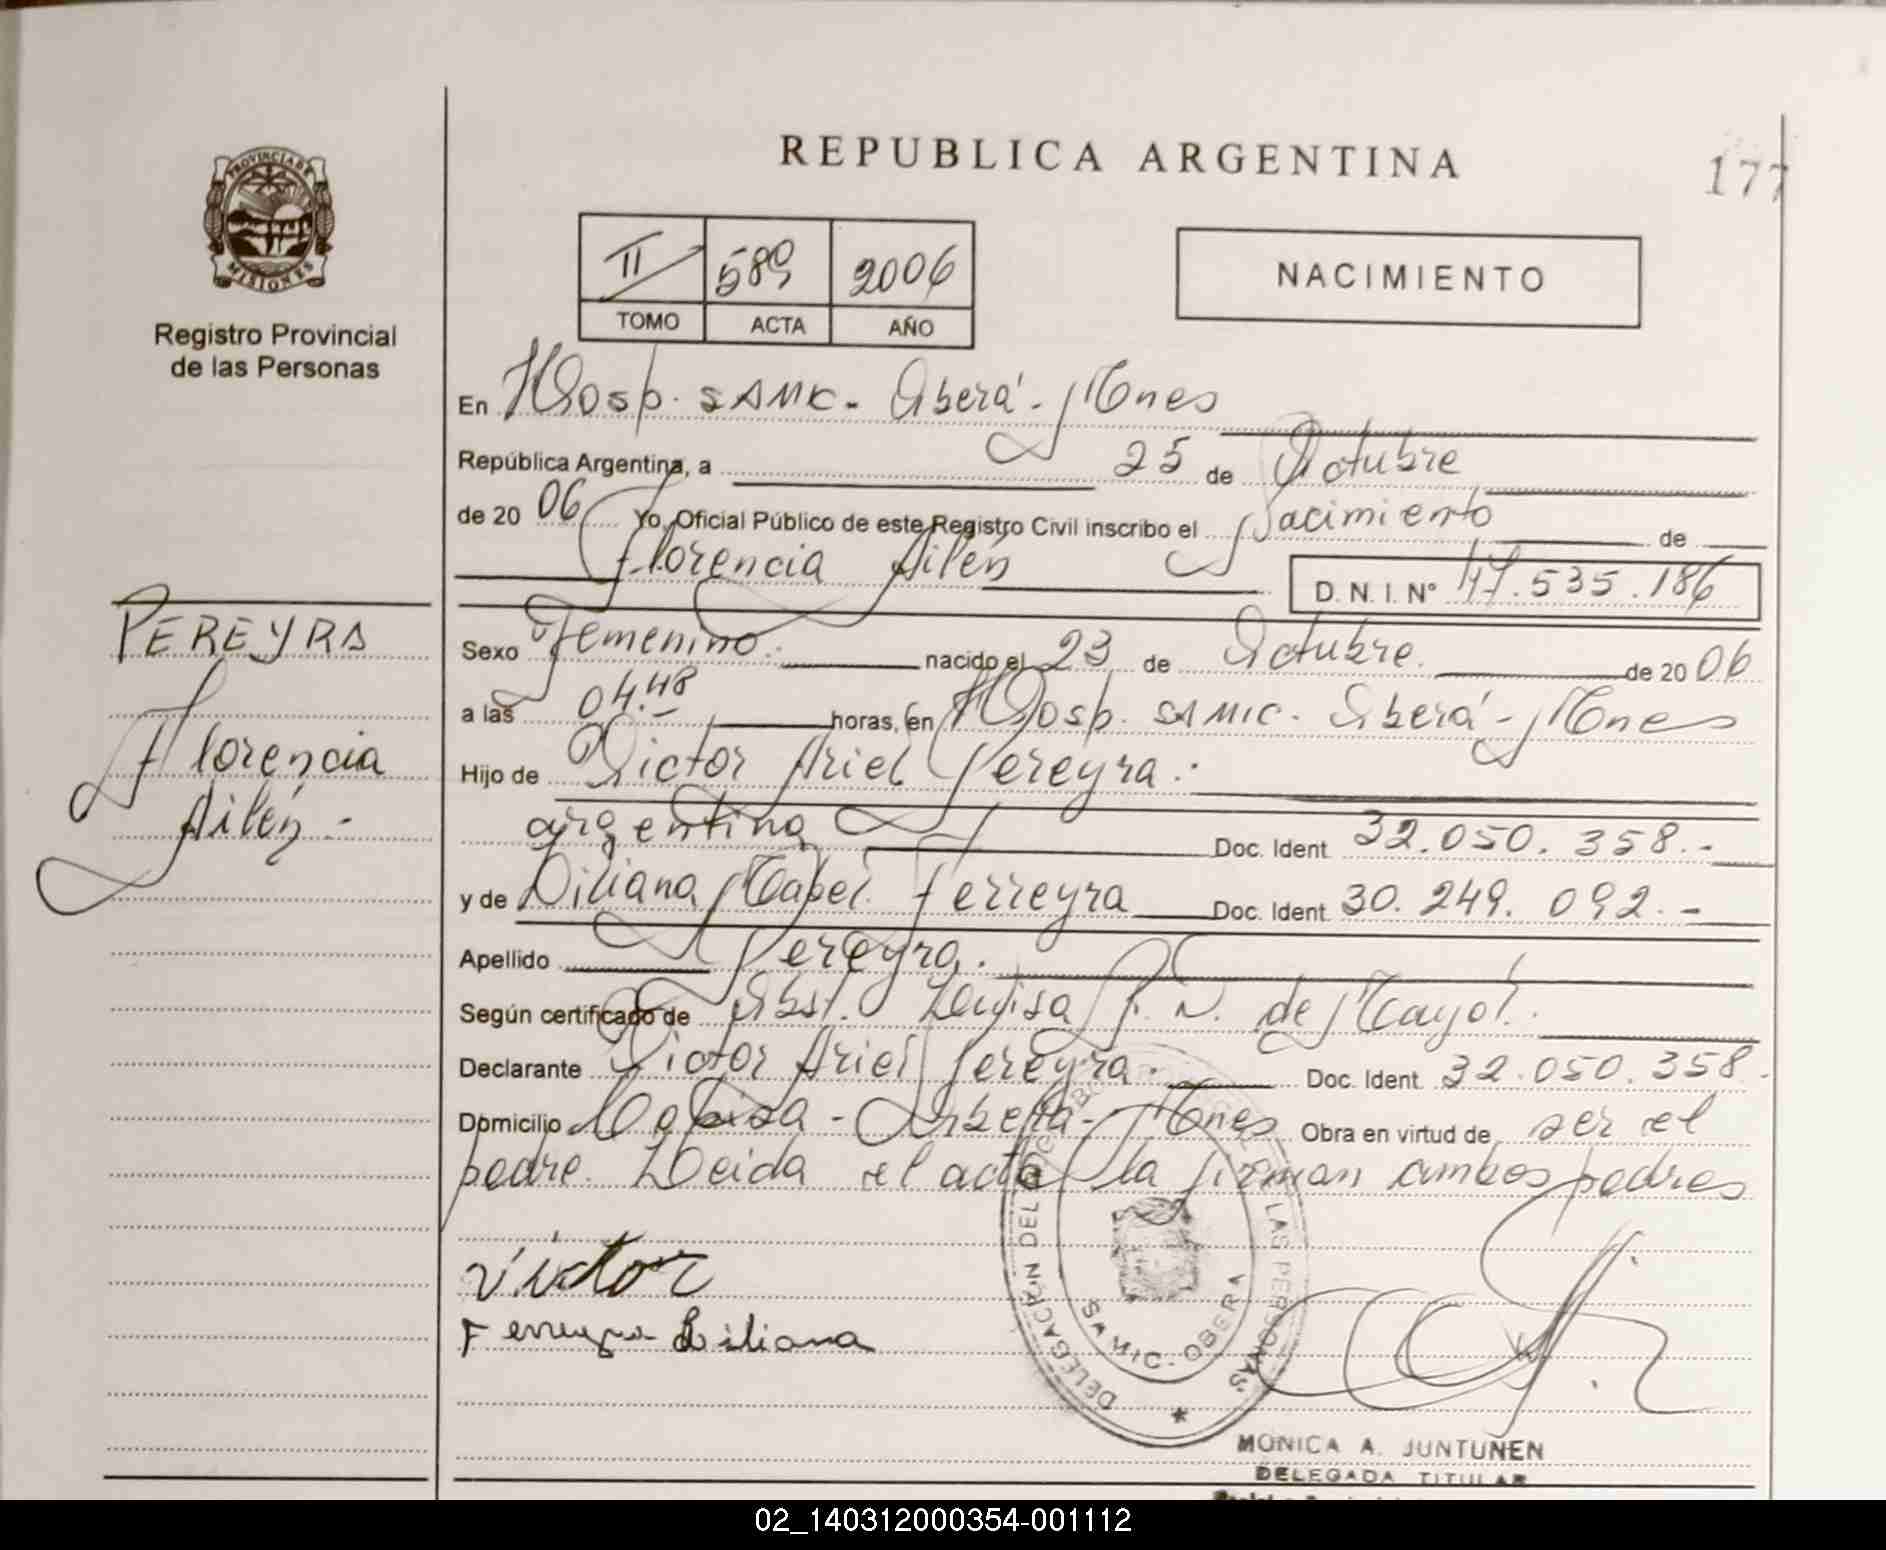 REPUBLICA ARGENTINA
177
PROVINCIA DE
MISIONES
Registro Provincial
de las Personas
II 589 2006
TOMO ACTA AÑO
NACIMIENTO
En Hosp. SAMIC - Oberá - Mnes
República Argentina, a 25 de Octubre
de 20 06 Yo, Oficial Público de este Registro Civil inscribo el Nacimiento de
Florencia Ailén
D. N. I. Nº 47.535.186
PEREYRA
Florencia
Ailén -
Sexo Femenino. nacido el 23 de Octubre. de 20 06
a las 04.48 horas, en Hosp. SAMIC. Oberá - Mnes
Hijo de Victor Ariel Pereyra.
argentino Doc. Ident 32.050.358.-
y de Liliana Mabel Ferreyra Doc. Ident 30.249.092.-
Apellido Pereyra.
Según certificado de Obst. Luisa N. de
Declarante Victor Ariel Pereyra. Doc. Ident. 32.050.358.
Domicilio - Oberá - Mnes Obra en virtud de ser el
padre. Leida el acta la firman ambos padres
Victor
Ferreyra Liliana
DELEGACION DEL LAS PERSONAS
SAMIC - OBERA
MONICA A. JUNTUNEN
DELEGADA TITULAR
02_140312000354-001112